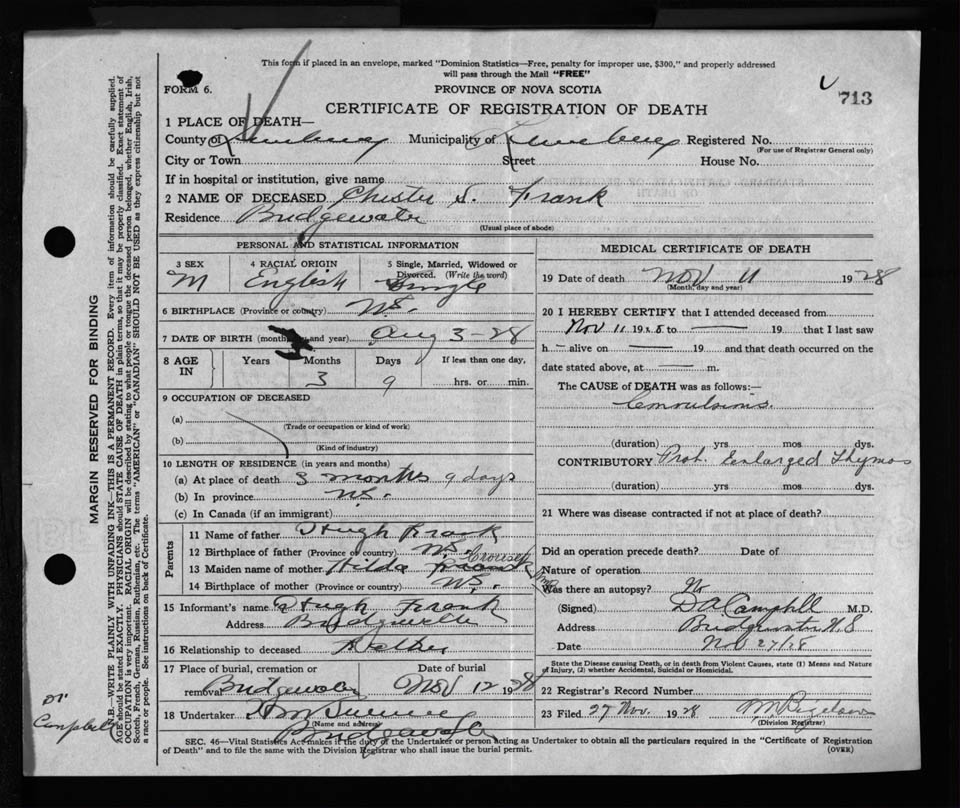 This form if placed in an envelope, marked "Dominion Statistics—Free, penalty for improper use, $300," and properly addressed
will pass through the Mail "FREE"
FORM 6.
PROVINCE OF NOVA SCOTIA
713
CERTIFICATE OF REGISTRATION OF DEATH
1 PLACE OF DEATH—
County of Lunenburg Municipality of Lunenburg Registered No.
(For use of Registrar General only)
City or Town Street House No.
If in hospital or institution, give name
2 NAME OF DECEASED Chester S. Frank
Residence Bridgewater
(Usual place of abode)
PERSONAL AND STATISTICAL INFORMATION
3 SEX 4 RACIAL ORIGIN 5 Single, Married, Widowed or
Divorced. (Write the word)
M English Single
6 BIRTHPLACE (Province or country) N.S.
7 DATE OF BIRTH (month, day and year) Aug 3-28
8 AGE IN Years Months Days If less than one day,
3 9 hrs. or min.
9 OCCUPATION OF DECEASED
(a)
(Trade or occupation or kind of work)
(b)
(Kind of industry)
10 LENGTH OF RESIDENCE (in years and months)
(a) At place of death 3 months 9 days
(b) In province N.S.
(c) In Canada (if an immigrant)
Parents
11 Name of father Hugh Frank
12 Birthplace of father (Province or country) N.S.
13 Maiden name of mother Hilda Frank
14 Birthplace of mother (Province or country) N.S.
15 Informant's name Hugh Frank
Address Bridgewater
16 Relationship to deceased Father
17 Place of burial, cremation or Date of burial
removal Bridgewater Nov 12 1928
18 Undertaker
(Name and address)
Bridgewater
MEDICAL CERTIFICATE OF DEATH
19 Date of death Nov 11 1928
(Month, day and year)
20 I HEREBY CERTIFY that I attended deceased from
Nov 11 1928 to — 19 that I last saw
h— alive on — 19 and that death occurred on the
date stated above, at — m.
The CAUSE of DEATH was as follows:—
Convulsions.
(duration) yrs mos dys.
CONTRIBUTORY Prob. Enlarged Thymus
(duration) yrs mos dys.
21 Where was disease contracted if not at place of death?
Did an operation precede death? Date of
Nature of operation
Was there an autopsy? No
(Signed) D A Campbell M.D.
Address Bridgewater N.S
Date Nov 27/28
State the Disease causing Death, or in death from Violent Causes, state (1) Means and Nature
of Injury, (2) whether Accidental, Suicidal or Homicidal.
22 Registrar's Record Number
23 Filed 27 Nov. 1928
(Division Registrar)
SEC. 46—Vital Statistics Act makes it the duty of the Undertaker or person acting as Undertaker to obtain all the particulars required in the "Certificate of Registration
of Death" and to file the same with the Division Registrar who shall issue the burial permit.
(OVER)
MARGIN RESERVED FOR BINDING
N.B.—WRITE PLAINLY WITH UNFADING INK—THIS IS A PERMANENT RECORD. Every item of information should be carefully supplied.
AGE should be stated EXACTLY. PHYSICIANS should STATE CAUSE OF DEATH in plain terms, so that it may be properly classified. Exact statement of
OCCUPATION is very important. RACIAL ORIGIN will be described by stating to what people or tongue the deceased person belonged, whether English, Irish,
Scotch, French, German, Russian, Ruthenian, etc. The terms "AMERICAN" or "CANADIAN" SHOULD NOT BE USED as they express citizenship but not
a race or people. See instructions on back of Certificate.
Dr
Campbell